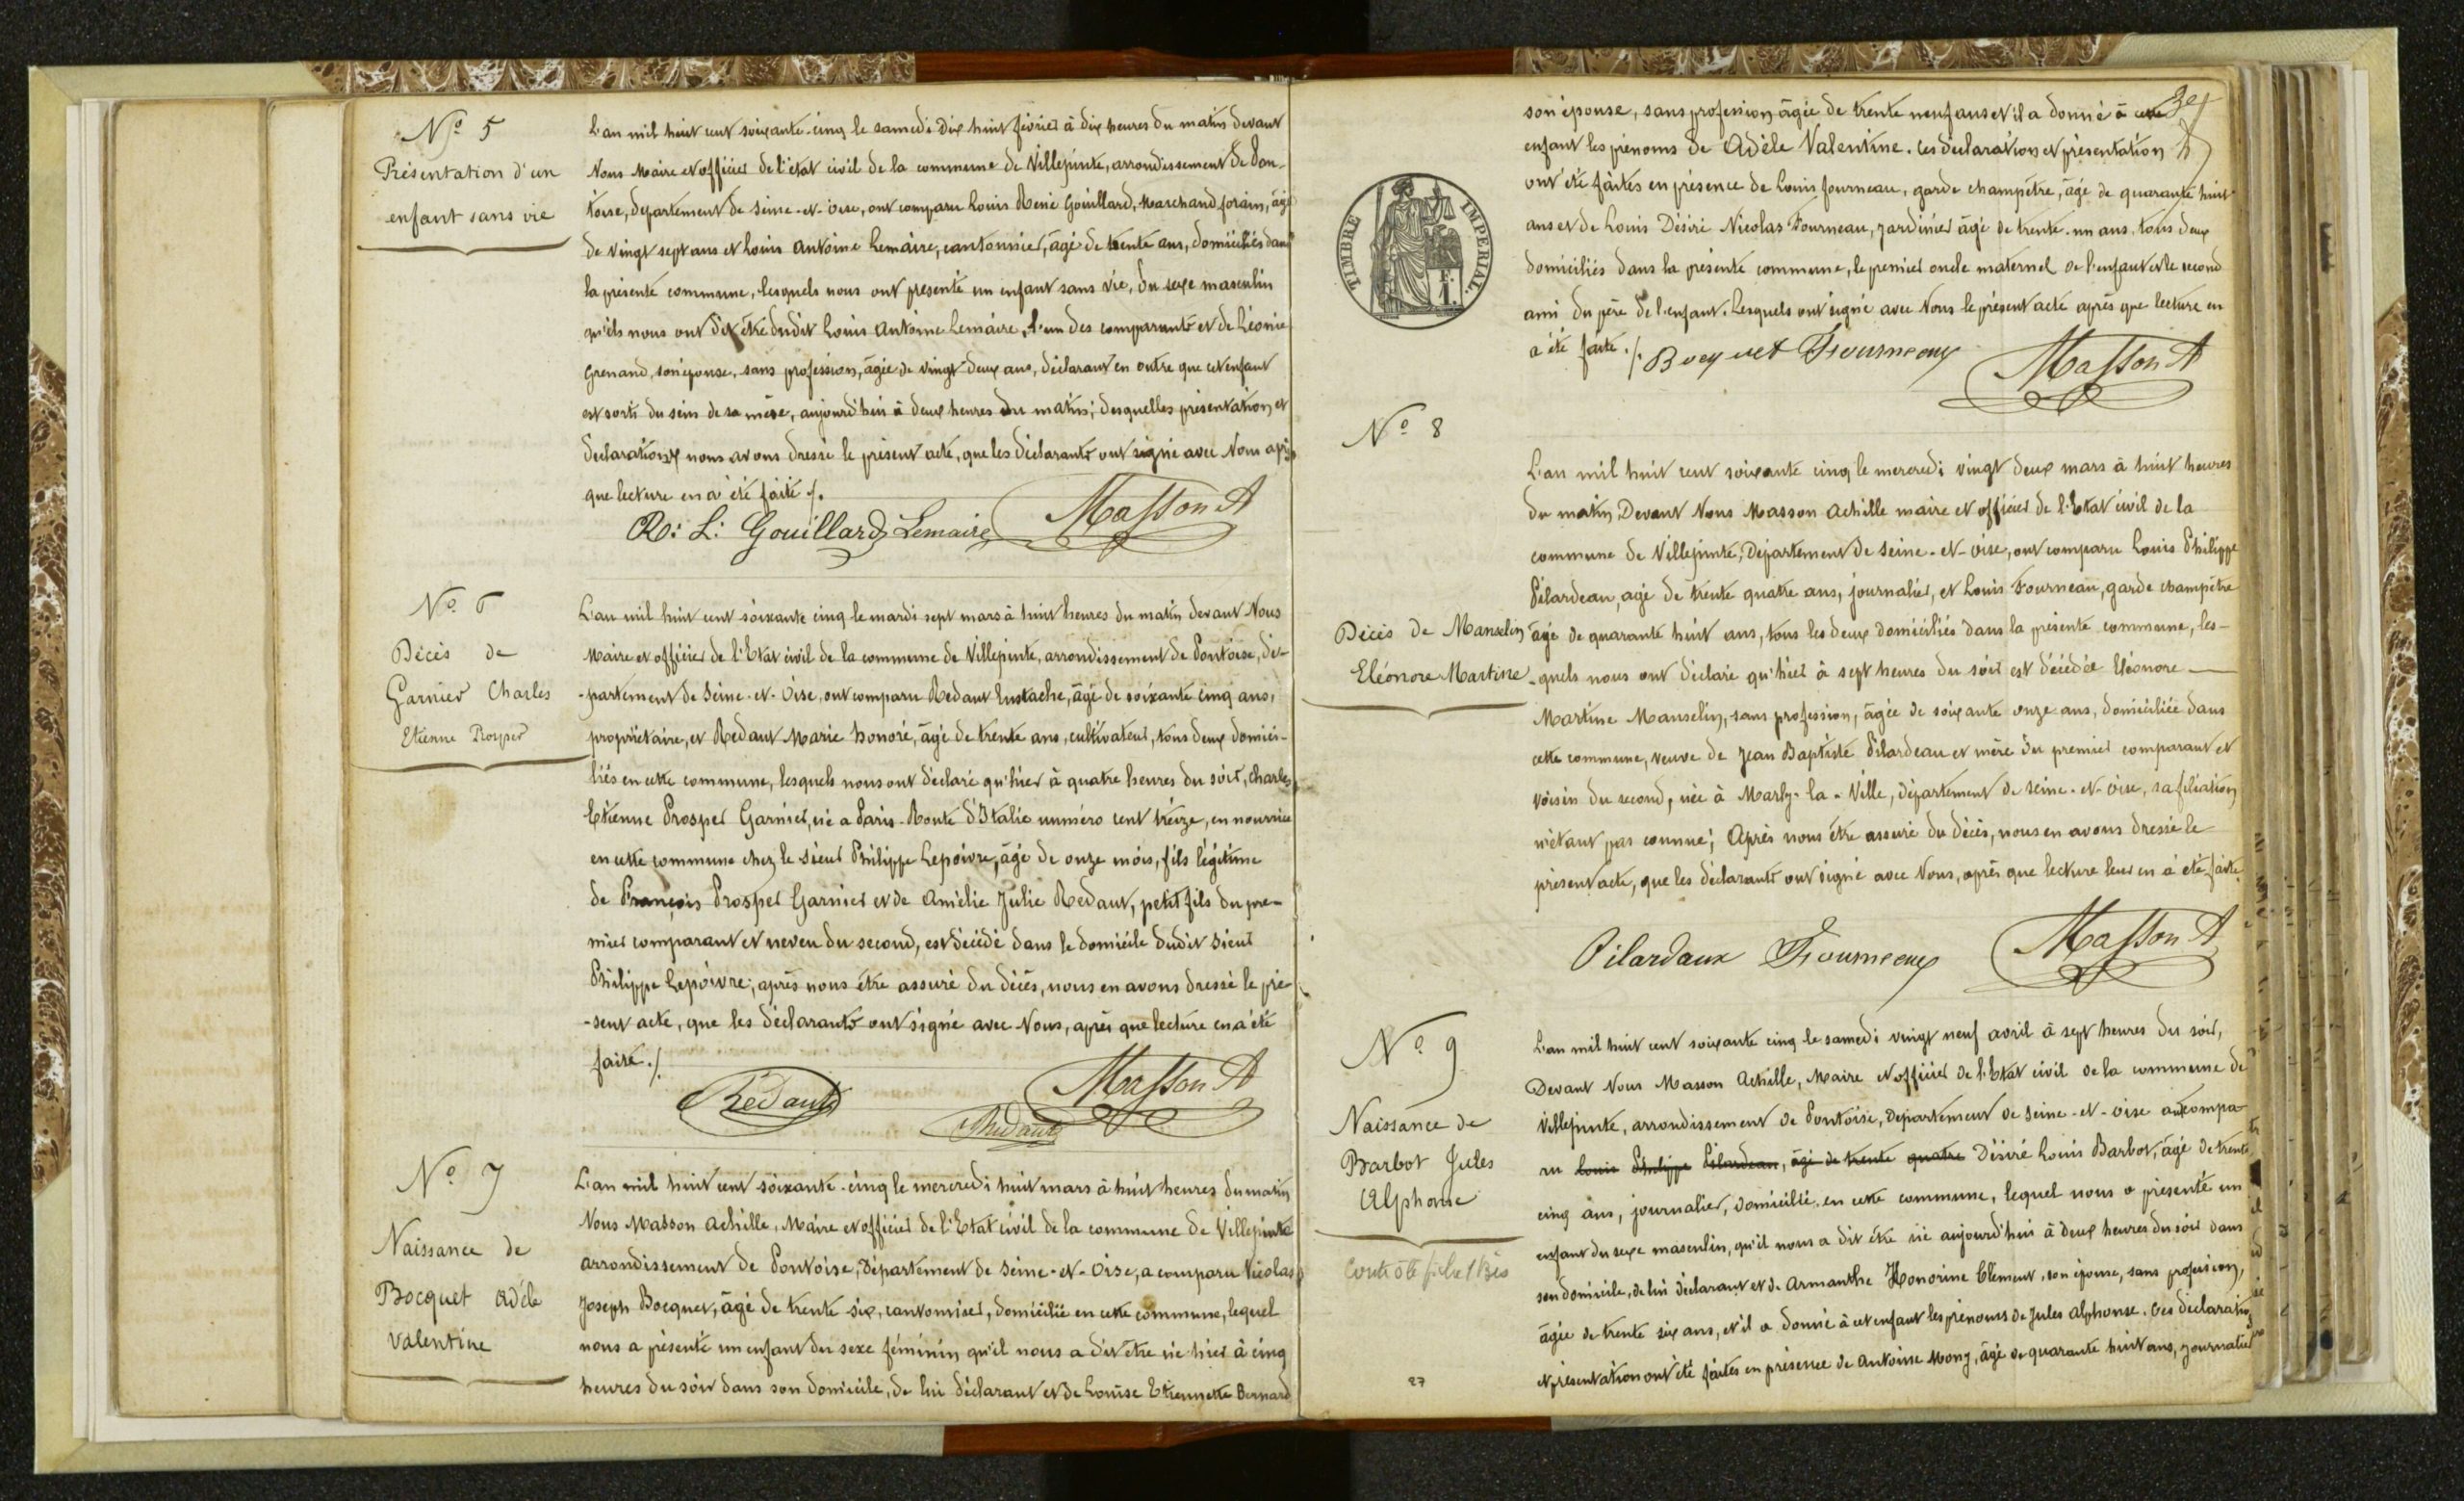 Nº 5
Présentation d'un
enfant sans vie
L'an mil huit cent soixante-cinq le samedi dix huit février à dix heures du matin devant
Nous Maire et officier de l'état civil de la commune de Villepinte, arrondissement de Pon-
toise, département de Seine-et-Oise, ont comparu Louis René Gouillard, Marchand forain, âgé
de vingt sept ans et Louis Antoine Lemaire, cantonnier, âgé de trente ans, domiciliés dans
la présente commune, lesquels nous ont présenté un enfant sans vie, du sexe masculin
qu'ils nous ont dit être dudit Louis Antoine Lemaire, l'un des comparants et de Léonie
Grenand, son épouse, sans profession, âgée de vingt-deux ans, déclarant en outre que cet enfant
est sorti du sein de sa mère, aujourd'hui à deux heures du matin; desquelles présentation et
déclaration nous avons dressé le présent acte, que les déclarants ont signé avec Nous après
que lecture en a été faite ./.
R: L: Gouillard Lemaire Masson A
Nº 6
Décès de
Garnier Charles
Etienne Prosper
L'an mil huit cent soixante cinq le mardi sept mars à huit heures du matin devant Nous
Maire et officier de l'Etat civil de la commune de Villepinte, arrondissement de Pontoise, dé-
-partement de Seine-et-Oise, ont comparu Redaut Eustache, âgé de soixante cinq ans,
propriétaire, et Redaut Marie honoré, âgé de trente ans, cultivateur, tous deux domici-
liés en cette commune, lesquels nous ont déclaré qu'hier à quatre heures du soir, Charles
Etienne Prosper Garnier, né a Paris-Route d'Italie numéro cent treize, en nourrice
en cette commune chez le sieur Philippe Lepoivre, âgé de onze mois, fils légitime
de François Prosper Garnier et de Amélie Julie Redaut, petit fils du pre-
mier comparant et neveu du second, est décédé dans le domicile dudit Sieur
Philippe Lepoivre; après nous être assuré du décès, nous en avons dressé le pré-
-sent acte, que les déclarants ont signé avec Nous, après que lecture en a été
faite ./.
Rédaut Masson A
Redaut
Nº 7
Naissance de
Bocquet Adèle
Valentine
L'an mil huit cent soixante-cinq le mercredi huit mars à huit heures du matin
Nous Masson Achille, Maire et officier de l'Etat civil de la commune de Villepinte
arrondissement de Pontoise, département de Seine-et-Oise, a comparu Nicolas
Joseph Bocquet, âgé de trente six, cantonnier, domicilié en cette commune, lequel
nous a présenté un enfant du sexe féminin qu'il nous a dit être né hier à cinq
heures du soir dans son domicile, de lui déclarant et de Louise Etiennette Bernard
son épouse, sans profession âgée de trente neuf ans et il a donné à cette
enfant les prénoms de Adèle Valentine. Ces déclaration et présentation
ont été faites en présence de Louis Fourneau, garde champêtre, âgé de quarante huit
ans et de Louis Désiré Nicolas Fourneau, jardinier âgé de trente-un ans, tous deux
domiciliés dans la présente commune, le premier oncle maternel de l'enfant et le second
ami du père de l'enfant. Lesquels ont signé avec Nous le présent acte après que lecture en
a été faite ./. Bocquet Fourneaux Masson A
TIMBRE IMPERIAL.
1 F.
Nº 8
Décès de Manselin
Eléonore Martine
L'an mil huit cent soixante cinq le mercredi vingt deux mars à huit heures
du matin Devant Nous Masson Achille maire et officier de l'Etat civil de la
commune de Villepinte, Département de Seine-et-Oise, ont comparu Louis Philippe
Pilardeau, agé de trente quatre ans, journalier, et Louis Fourneau, garde champêtre
âgé de quarante huit ans, tous les deux domiciliés dans la présente commune, les-
-quels nous ont déclaré qu'hier à sept heures du soir est décédée Eléonore
Martine Manselin, sans profession, âgée de soixante onze ans, domiciliée dans
cette commune, veuve de Jean Baptiste Pilardeau et mère du premier comparant et
voisin du second, née à Marly-la-Ville, département de Seine-et-Oise, sa filiation
n'étant pas connue; Après nous être assuré du décès, nous en avons dressé le
présent acte, que les déclarants ont signé avec Nous, après que lecture leur en a été faite
Pilardaux Fourneaux Masson A
Nº 9
Naissance de
Barbot Jules
Alphonse
L'an mil huit cent soixante cinq le samedi vingt neuf avril à sept heures du soir,
Devant Nous Masson Achille, Maire et officier de l'Etat civil de la commune de
Villepinte, arrondissement de Pontoise, département de Seine-et-Oise a compa-
ru Louis Philippe Pilardeau, âgé de trente quatre Désiré Louis Barbot, âgé de trente
cinq ans, journalier, domicilié en cette commune, lequel nous a présenté un
enfant du sexe masculin, qu'il nous a dit être né aujourd'hui à deux heures du soir dans
son domicile, de lui déclarant et de Armanthe Honorine Clément, son épouse, sans profession,
âgée de trente six ans, et il a donné à cet enfant les prénoms de Jules Alphonse. Ces déclaration
et présentation ont été faites en présence de Antoine Mony, âgé de quarante huit ans, journalier
27